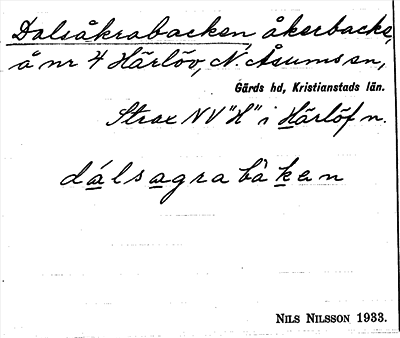 Dalsåkrabacken, åkerbacke,
å nr 4 Härlöv, N. Åsums sn,
Gärds hd, Kristianstads län.
Strax NV "H" i Härlöf n.
dálsagrabàken
NILS NILSSON 1933.